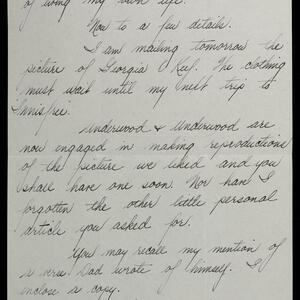 of living my own life.
Now to a few details.
I am mailing tomorrow the
picture of Georgia O'Keef. The clothing
must wait until my next trip to
Innisfree.
Underwood & Underwood are
now engaged in making reproductions
of the picture we liked and you
shall have one soon. Nor have I
forgotten the other little personal
article you asked for.
You may recall my mention of
a verse Dad wrote of himself. I
enclose a copy.